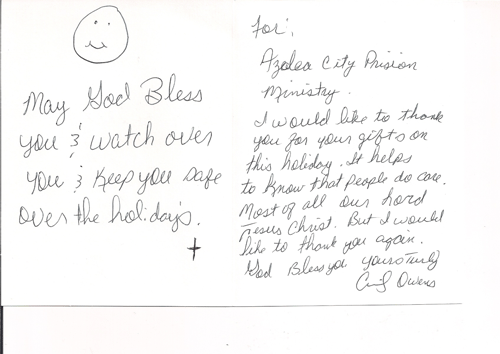 May God Bless
you & watch over
you & Keep you safe
over the holiday's.
For:
Azalea City Prision
Ministry.
I would like to thank
you for your gifts on
this holiday. It helps
to know that people do care.
Most of all our Lord
Jesus Christ. But I would
like to thank you again.
God Bless you yours Truly
Owens